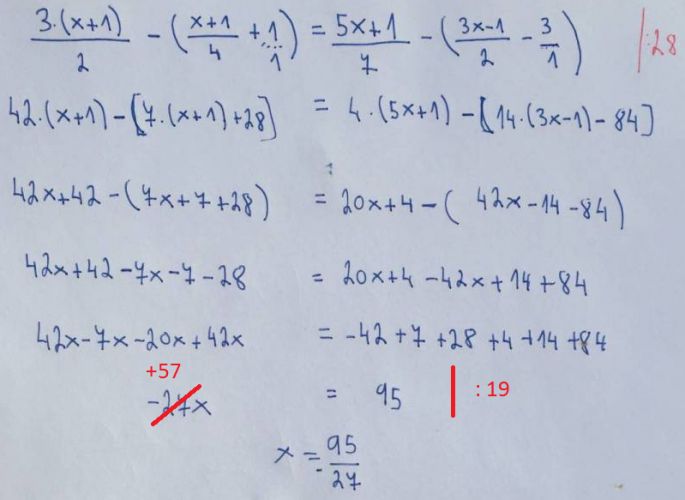 3·(x+1)/2 - (x+1/4 + 1/1) = 5x+1/7 - (3x-1/2 - 3/1) |:28
42·(x+1) - [7·(x+1)+28] = 4·(5x+1) - [14·(3x-1) - 84]
42x+42 - (7x+7+28) = 20x+4 - (42x-14-84)
42x+42-7x-7-28 = 20x+4-42x+14+84
42x-7x-20x+42x = -42+7+28+4+14+84
+57
-27x = 95 | : 19
x = 95/27